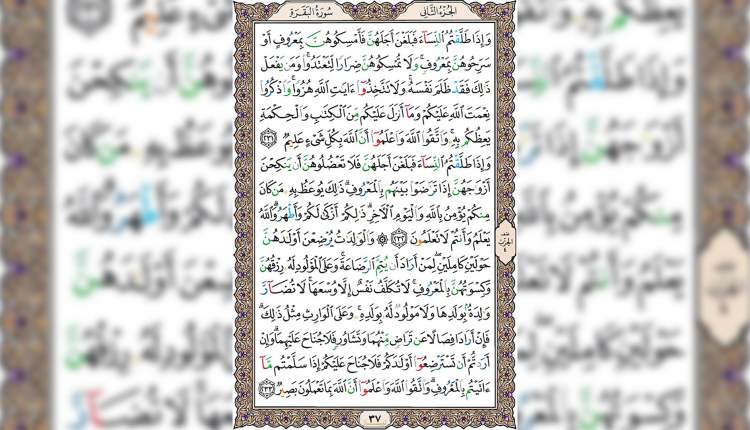 الجزء الثاني
سورة البقرة
وَإِذَا طَلَّقْتُمُ النِّسَاءَ فَبَلَغْنَ أَجَلَهُنَّ فَأَمْسِكُوهُنَّ بِمَعْرُوفٍ أَوْ
سَرِّحُوهُنَّ بِمَعْرُوفٍ وَلَا تُمْسِكُوهُنَّ ضِرَارًا لِتَعْتَدُوا وَمَن يَفْعَلْ
ذَٰلِكَ فَقَدْ ظَلَمَ نَفْسَهُ وَلَا تَتَّخِذُوا ءَايَٰتِ اللَّهِ هُزُوًا وَاذْكُرُوا
نِعْمَتَ اللَّهِ عَلَيْكُمْ وَمَا أَنزَلَ عَلَيْكُم مِّنَ الْكِتَٰبِ وَالْحِكْمَةِ
يَعِظُكُم بِهِ وَاتَّقُوا اللَّهَ وَاعْلَمُوا أَنَّ اللَّهَ بِكُلِّ شَيْءٍ عَلِيمٌ ٢٣١
وَإِذَا طَلَّقْتُمُ النِّسَاءَ فَبَلَغْنَ أَجَلَهُنَّ فَلَا تَعْضُلُوهُنَّ أَن يَنكِحْنَ
أَزْوَٰجَهُنَّ إِذَا تَرَٰضَوْا بَيْنَهُم بِالْمَعْرُوفِ ذَٰلِكَ يُوعَظُ بِهِ مَن كَانَ
مِنكُمْ يُؤْمِنُ بِاللَّهِ وَالْيَوْمِ الْآخِرِ ذَٰلِكُمْ أَزْكَىٰ لَكُمْ وَأَطْهَرُ وَاللَّهُ
يَعْلَمُ وَأَنتُمْ لَا تَعْلَمُونَ ٢٣٢ ۞ وَالْوَٰلِدَٰتُ يُرْضِعْنَ أَوْلَٰدَهُنَّ
حَوْلَيْنِ كَامِلَيْنِ لِمَنْ أَرَادَ أَن يُتِمَّ الرَّضَاعَةَ وَعَلَى الْمَوْلُودِ لَهُ رِزْقُهُنَّ
وَكِسْوَتُهُنَّ بِالْمَعْرُوفِ لَا تُكَلَّفُ نَفْسٌ إِلَّا وُسْعَهَا لَا تُضَارَّ
وَٰلِدَةٌ بِوَلَدِهَا وَلَا مَوْلُودٌ لَّهُ بِوَلَدِهِ وَعَلَى الْوَارِثِ مِثْلُ ذَٰلِكَ
فَإِنْ أَرَادَا فِصَالًا عَن تَرَاضٍ مِّنْهُمَا وَتَشَاوُرٍ فَلَا جُنَاحَ عَلَيْهِمَا وَإِنْ
أَرَدتُّمْ أَن تَسْتَرْضِعُوا أَوْلَٰدَكُمْ فَلَا جُنَاحَ عَلَيْكُمْ إِذَا سَلَّمْتُم مَّا
ءَاتَيْتُم بِالْمَعْرُوفِ وَاتَّقُوا اللَّهَ وَاعْلَمُوا أَنَّ اللَّهَ بِمَا تَعْمَلُونَ بَصِيرٌ ٢٣٣
٣٧